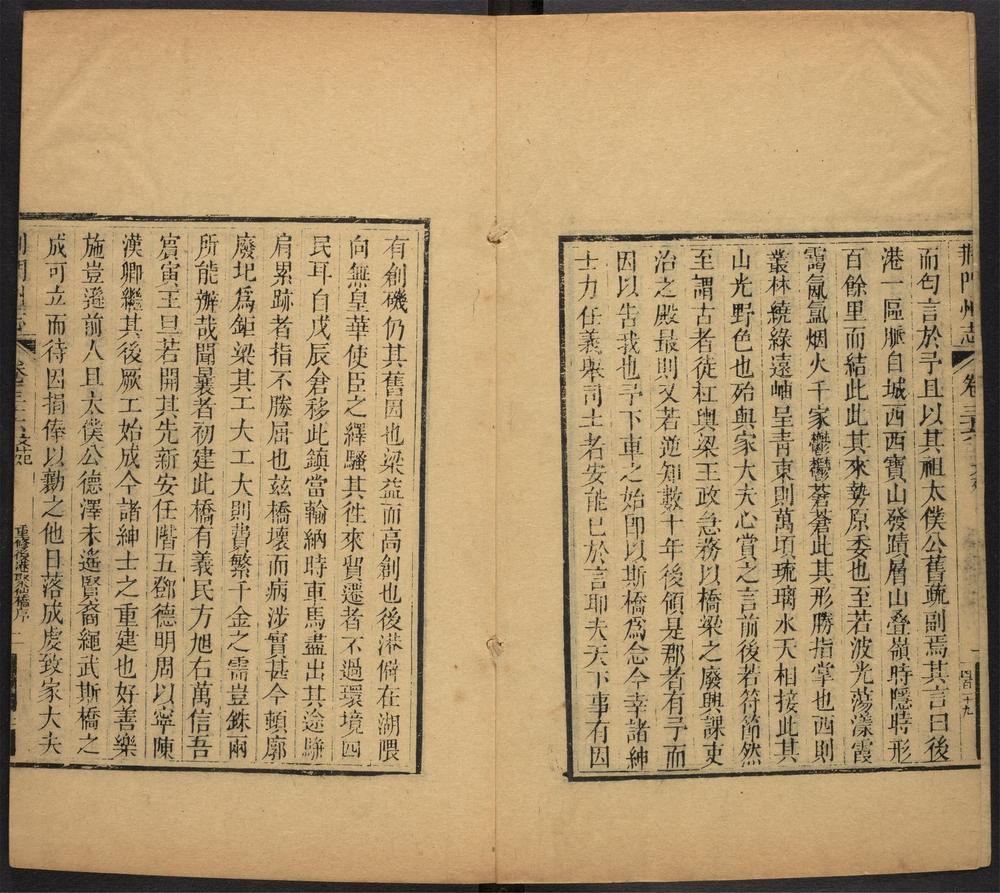 荊門州志
卷三十六
而匄言於予且以其祖太僕公舊疏副焉其言曰後
港一區脈自城西西寶山發蹟層山叠嶺時隱時形
百餘里而結此此其來勢原委也至若波光蕩漾霞
靄氤氲烟火千家鬱鬱蒼蒼此其形勝指掌也西則
叢林繞綠遠岫呈青東則萬頃琉璃水天相接此其
山光野色也殆與家大夫心賞之言前後若符節然
至謂古者徒杠輿梁王政急務以橋梁之廢興課吏
治之殿最則又若逆知數十年後領是郡者有予而
因以告我也予下車之始即以斯橋爲念今幸諸紳
士力任義舉司土者安能已於言耶夫天下事有因
有創磯仍其舊因也梁益而高創也後港僻在湖隈
向無皇華使臣之繹騷其徃來貿遷者不過環境四
民耳自戊辰倉移此鎮當輸納時車馬盡出其途駢
肩累跡者指不勝屈也兹橋壞而病涉實甚今頓廓
廢圯爲鉅梁其工大工大則費繁千金之需豈銖兩
所能辦哉聞曩者初建此橋有義民方旭右萬信吾
賔寅王旦若開其先新安任階五鄧德明周以寧陳
漢卿繼其後厥工始成今諸紳士之重建也好善樂
施豈遜前人且太僕公德澤未遙賢裔繩武斯橋之
成可立而待因捐俸以勷之他日落成虔致家大夫
重修後港聚仙橋序